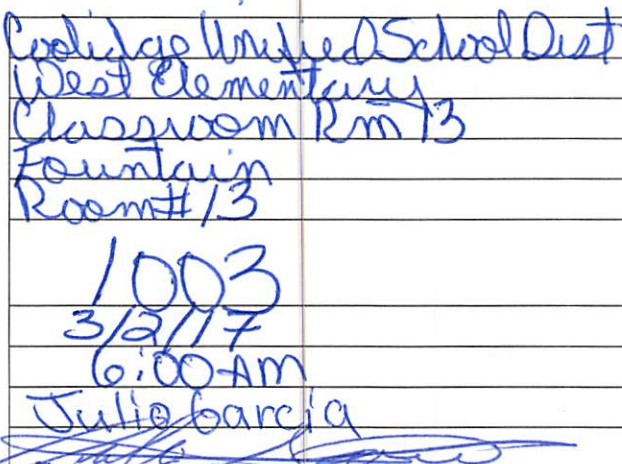 Coolidge Unified School Dist
West Elementary
Classroom Rm 13
Fountain
Room# 13
1003
3/2/17
6:00 AM
Julio Garcia